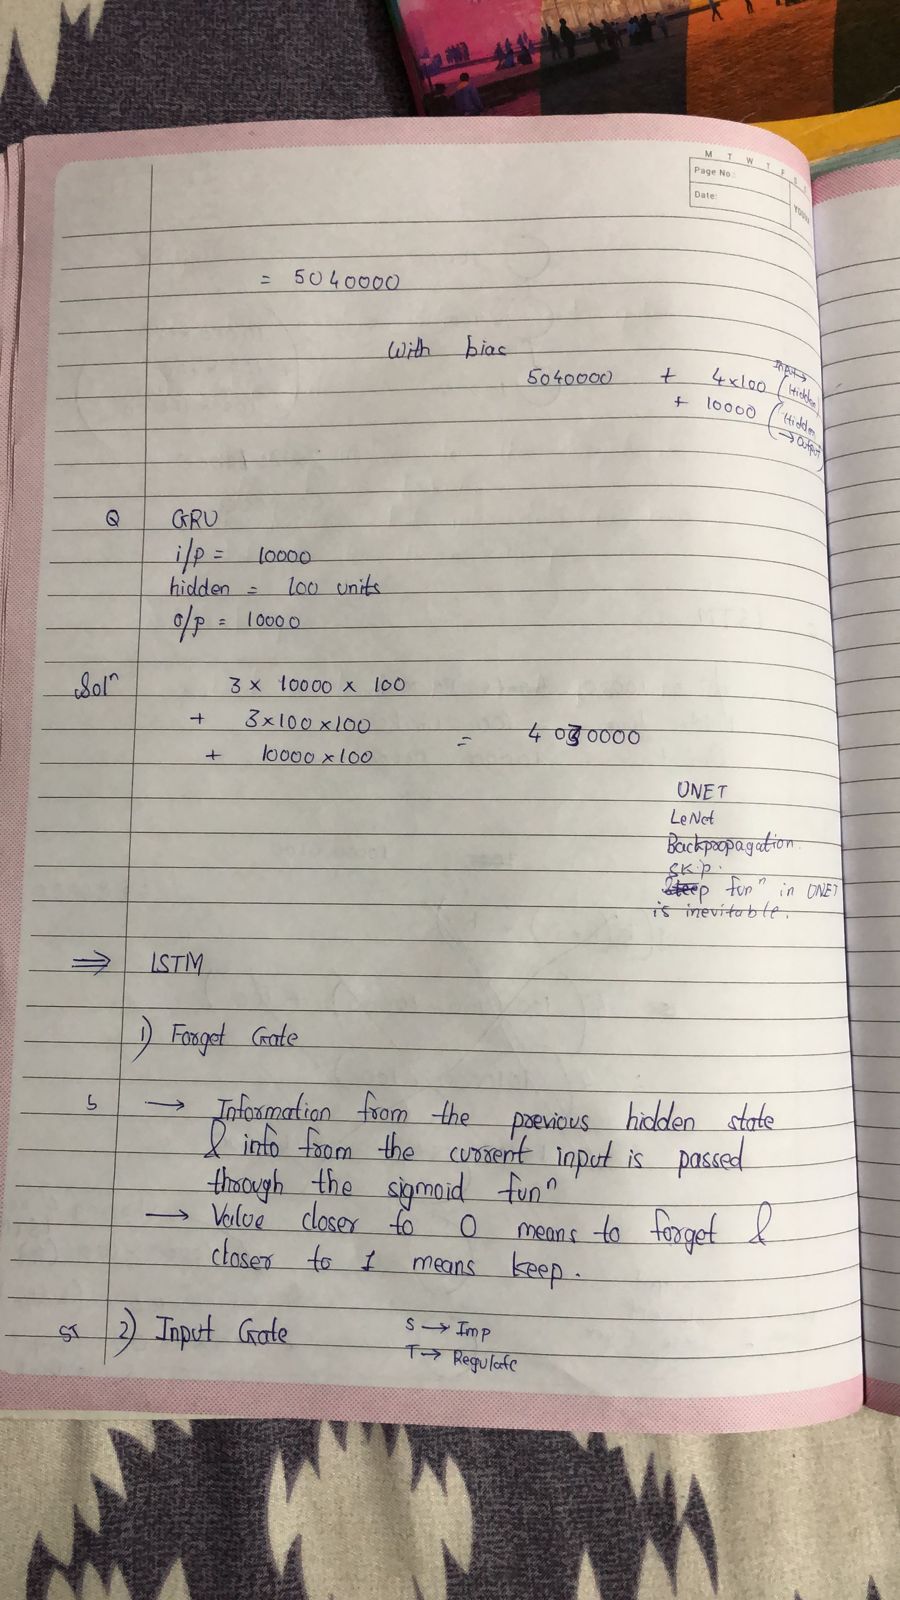 M T W T F S S
Page No.:
Date:
YOUVA
= 5040000
With bias
5040000 + 4x100 (Input → Hidden)
+ 10000 (Hidden → Output)
Q GRU
i/p = 10000
hidden = 100 units
o/p = 10000
Solⁿ 3 x 10000 x 100
+ 3x100x100 = 4030000
+ 10000x100
UNET
LeNet
Backpropagation.
Skip.
funⁿ in UNET
is inevitable.
⇒ LSTM
1) Forget Gate
s → Information from the previous hidden state
& info from the current input is passed
through the sigmoid funⁿ
→ Value closer to 0 means to forget &
closer to 1 means keep.
ST 2) Input Gate S → Imp
T → Regulate